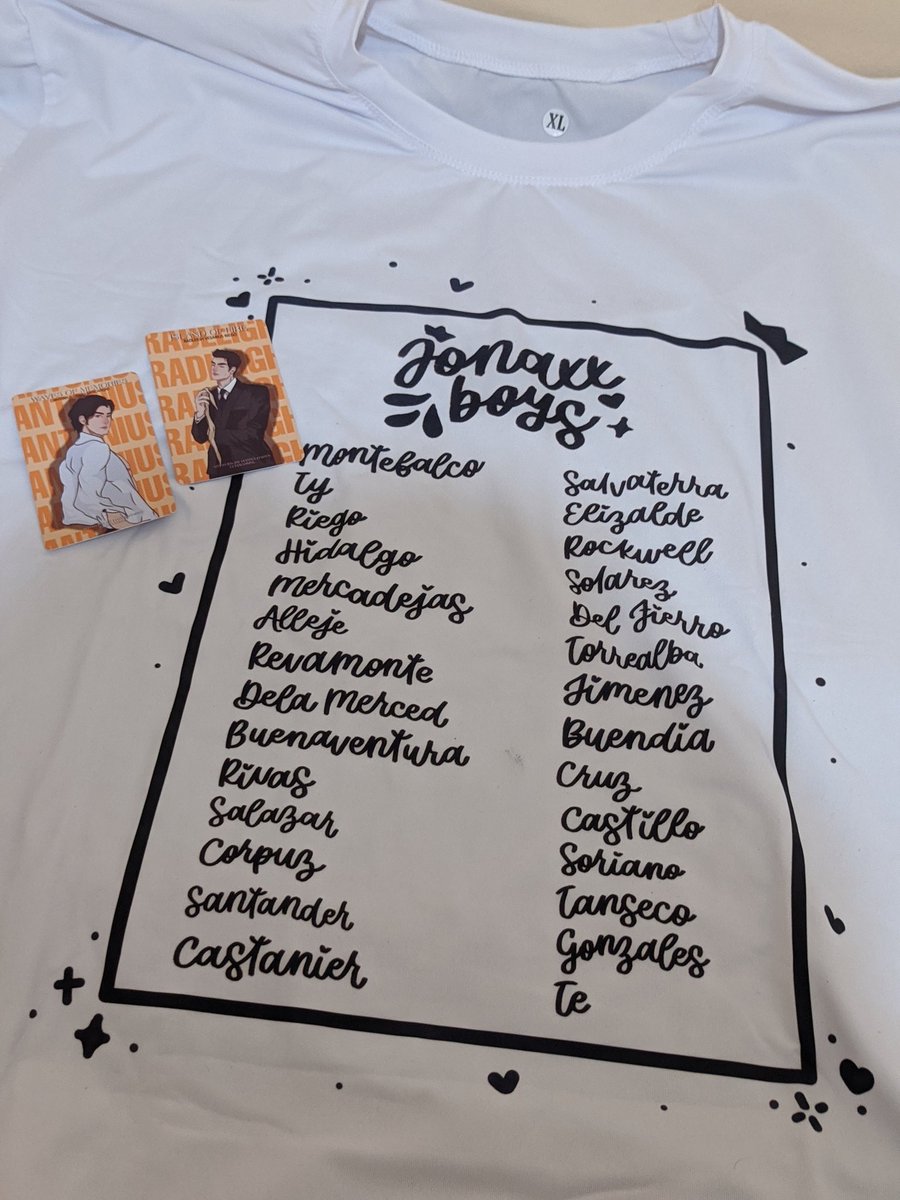 XL
Jonaxx
boys
Montefalco
Ty
Riego
Hidalgo
Mercadejas
Alleje
Revamonte
Dela Merced
Buenaventura
Rivas
Salazar
Corpuz
Santander
Castanier
Salvaterra
Elizalde
Rockwell
Solarez
Del Fierro
Torrealba
Jimenez
Buendia
Cruz
Castillo
Soriano
Tanseco
Gonzales
Te
WAVES OF MEMORIES
ANTONIUS
ANTONIUS
ISLAND OF FIRE
RADLEIGH
RADLEIGH